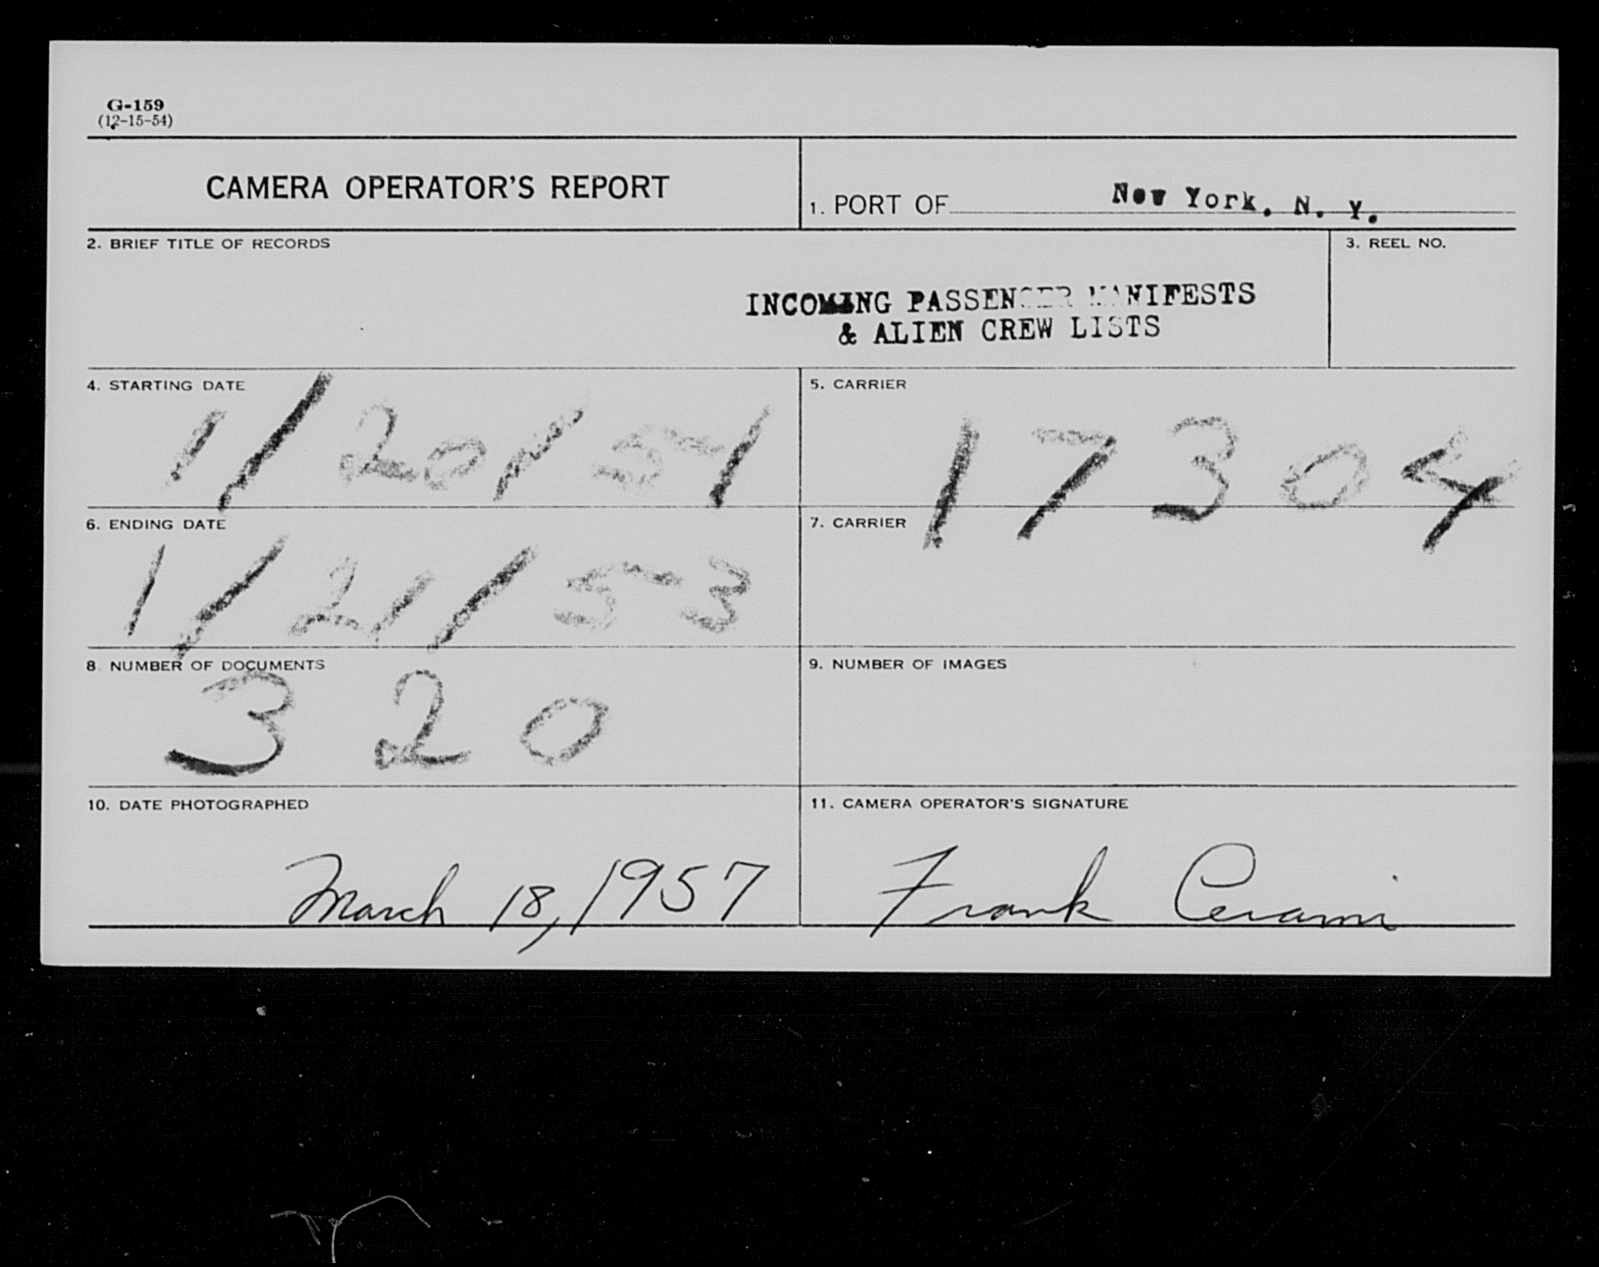 G-159
(12-15-54)
CAMERA OPERATOR'S REPORT
1. PORT OF New York, N. Y.
2. BRIEF TITLE OF RECORDS
3. REEL NO.
INCOMING PASSENGER MANIFESTS
& ALIEN CREW LISTS
4. STARTING DATE
1/20/51
5. CARRIER
17304
6. ENDING DATE
1/21/53
7. CARRIER
8. NUMBER OF DOCUMENTS
320
9. NUMBER OF IMAGES
10. DATE PHOTOGRAPHED
March 18, 1957
11. CAMERA OPERATOR'S SIGNATURE
Frank Cerami